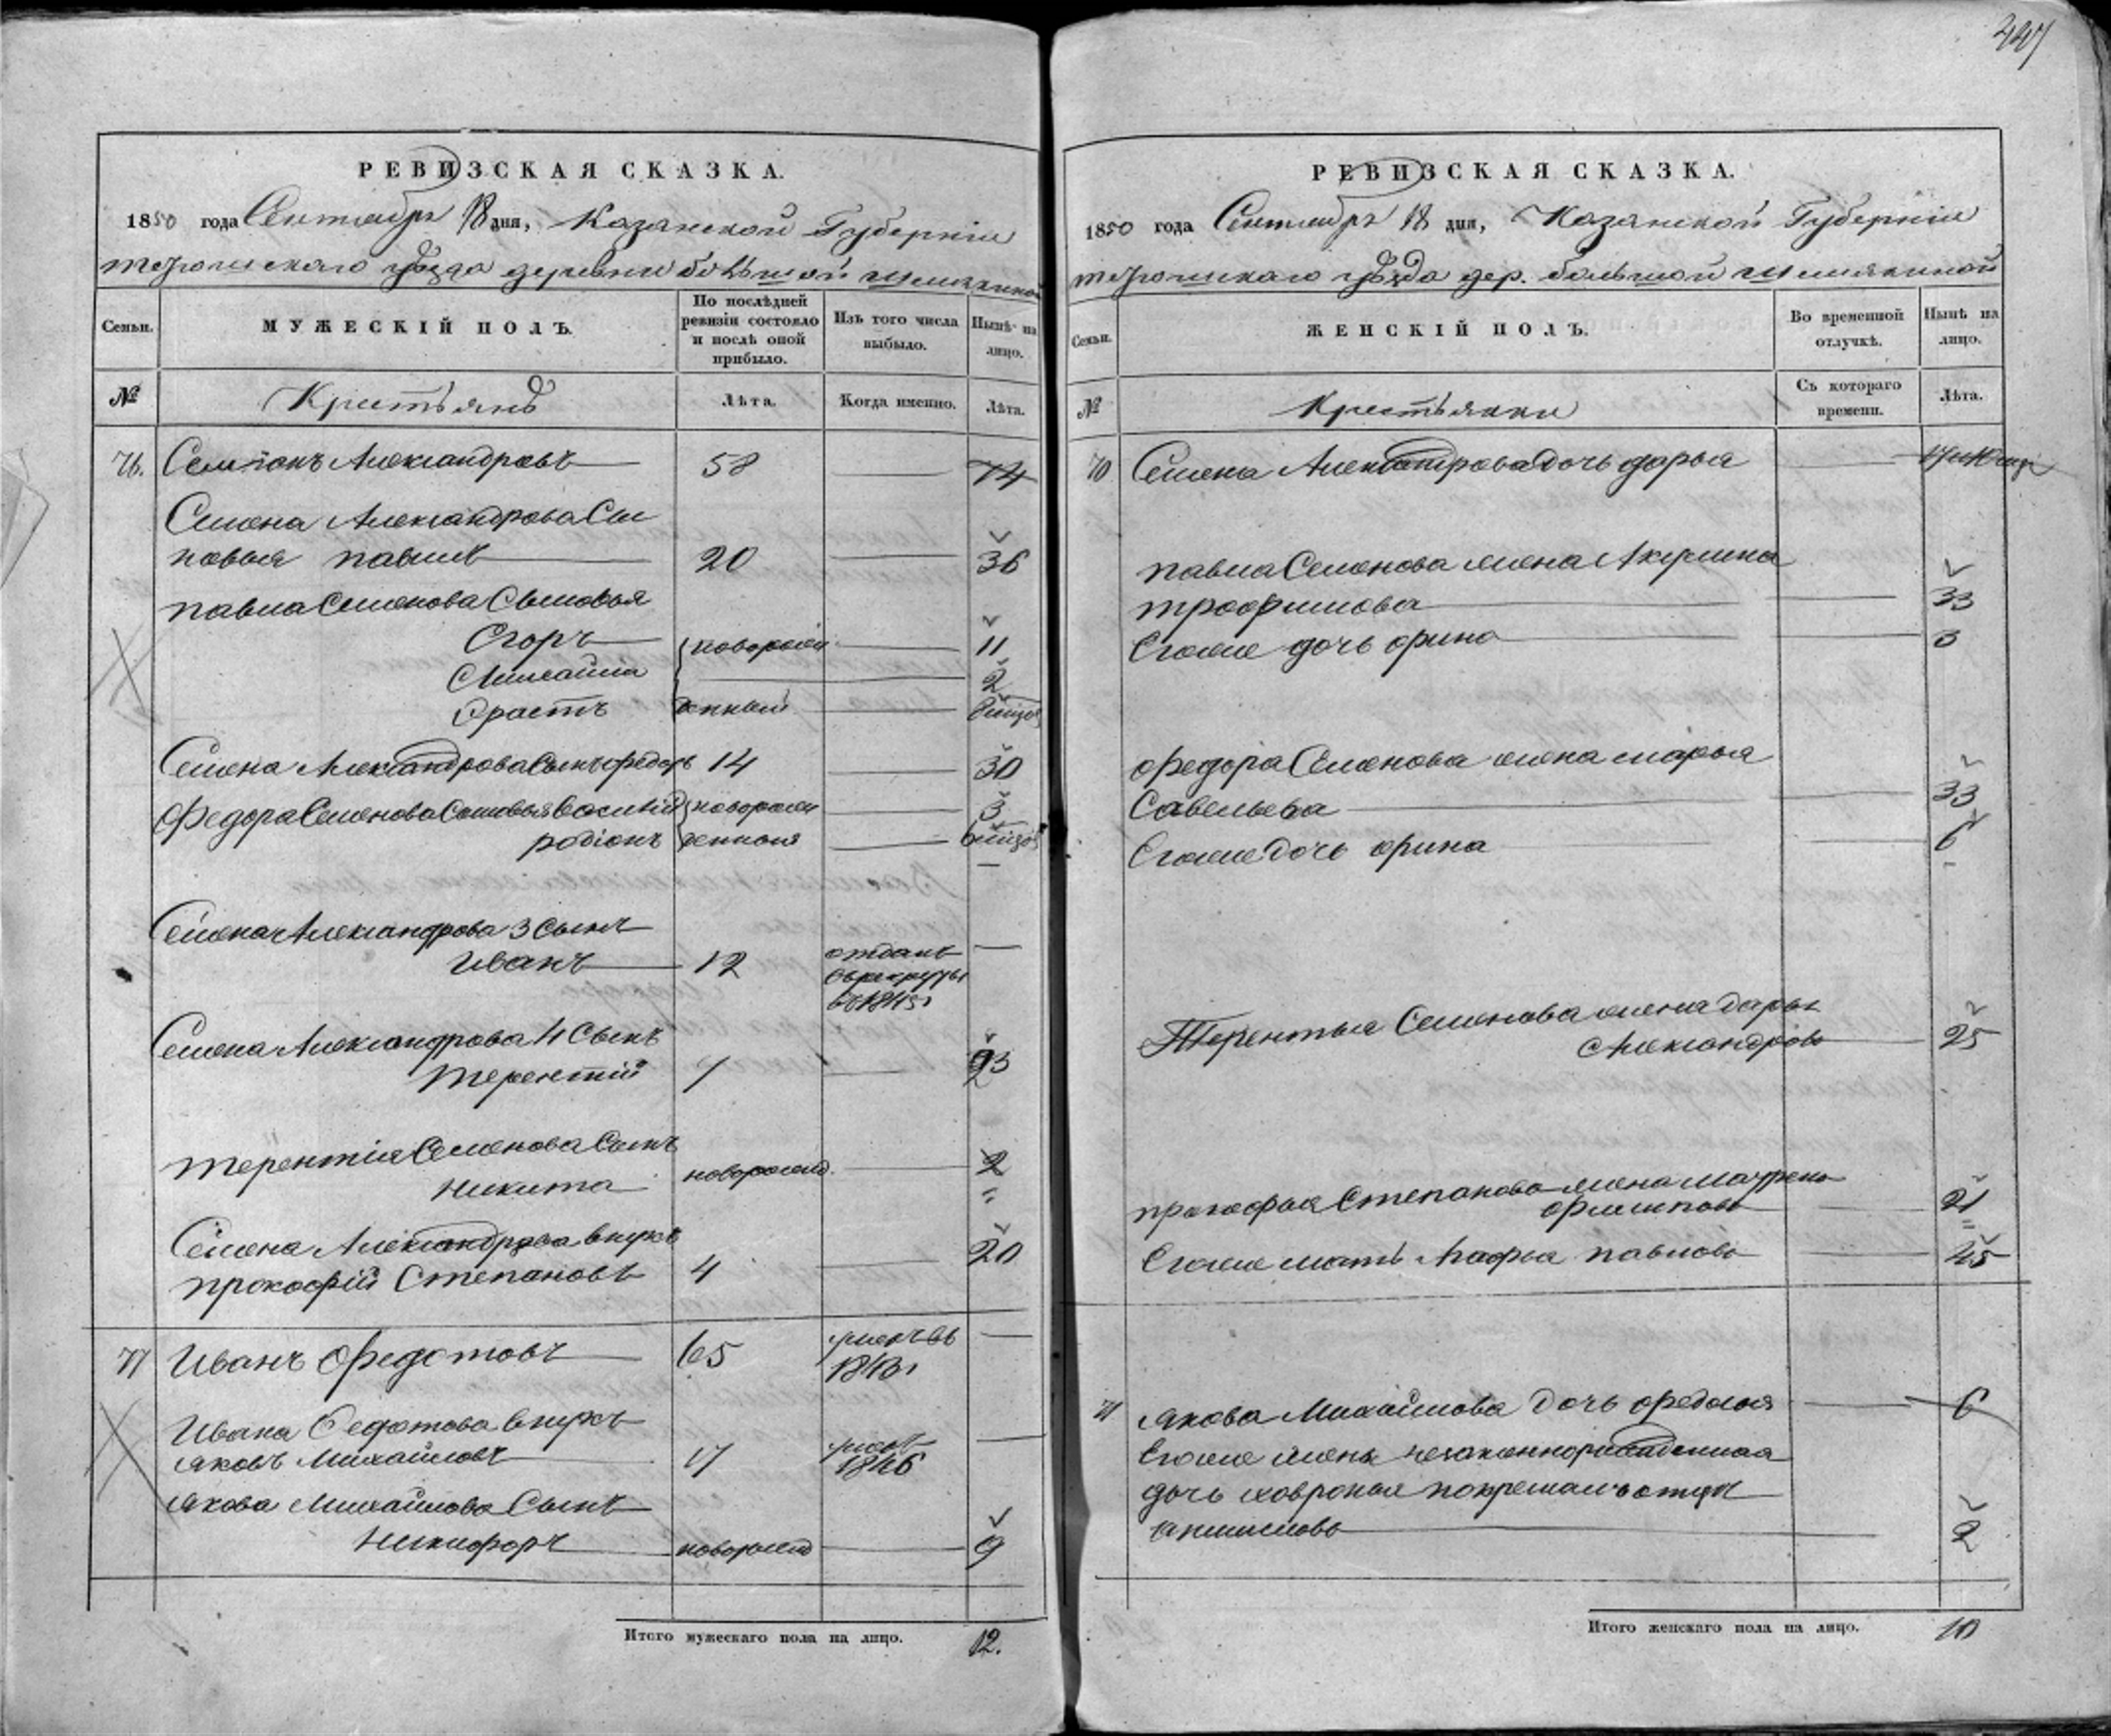 447
РЕВИЗСКАЯ СКАЗКА.
1850 года Сентября 18 дня, Казанской Губернiи
уѣзда деревни большой
Семьи.
МУЖЕСКIЙ ПОЛЪ.
По послѣдней ревизiи состояло и послѣ оной прибыло.
Изъ того числа выбыло.
Нынѣ на лицо.
№
Крестьянъ
Лѣта.
Когда именно.
Лѣта.
Семионъ Александровъ 58 74
Семена Александрова Сы
новья павилъ 20 36
павла Семенова Сыновья
Егоръ новорож 11
Михайла 2
Ерастъ денный
Семена Александрова Сынъ федоръ 14 30
Федора Семенова Сыновья Василiй новорож 3
родiонъ денныя
Семена Александрова 3 Сынъ
Иванъ 12 отданъ
въ рекруты
Семена Александрова 4 Сынъ
терентiй 7 23
терентiя Семенова Сынъ
Никита новорожд. 2
Семена Александрова внукъ
прокофiй Степановъ 4 20
71 Иванъ Федотовъ 65 умеръ въ
Ивана Федотова внукъ
яковъ Михайловъ 17 1846
якова Михайлова Сынъ
Никифоръ новорожд 9
Итого мужескаго пола на лицо. 12.
РЕВИЗСКАЯ СКАЗКА.
1850 года Сентября 18 дня, Казанской Губернiи
уѣзда дер. большой
Семьи.
ЖЕНСКIЙ ПОЛЪ.
Во временной отлучкѣ.
Нынѣ на лицо.
№
Крестьянки
Съ котораго времени.
Лѣта.
70 Семена Александрова дочь дарья
павла Семенова жена Акулина
трофимова 33
Егоже дочь орина
федора Семенова жена марья
Савельева 33
Егоже дочь орина 6
Терентья Семенова жена дарья
Александрова 25
прокофья Степанова жена матрена
филипова 21
Егоже мать Агафья павлова 45
71 якова Михайлова дочь федосья 6
Егоже жены незаконнорожденная
дочь ховронья
2
Итого женскаго пола на лицо. 10